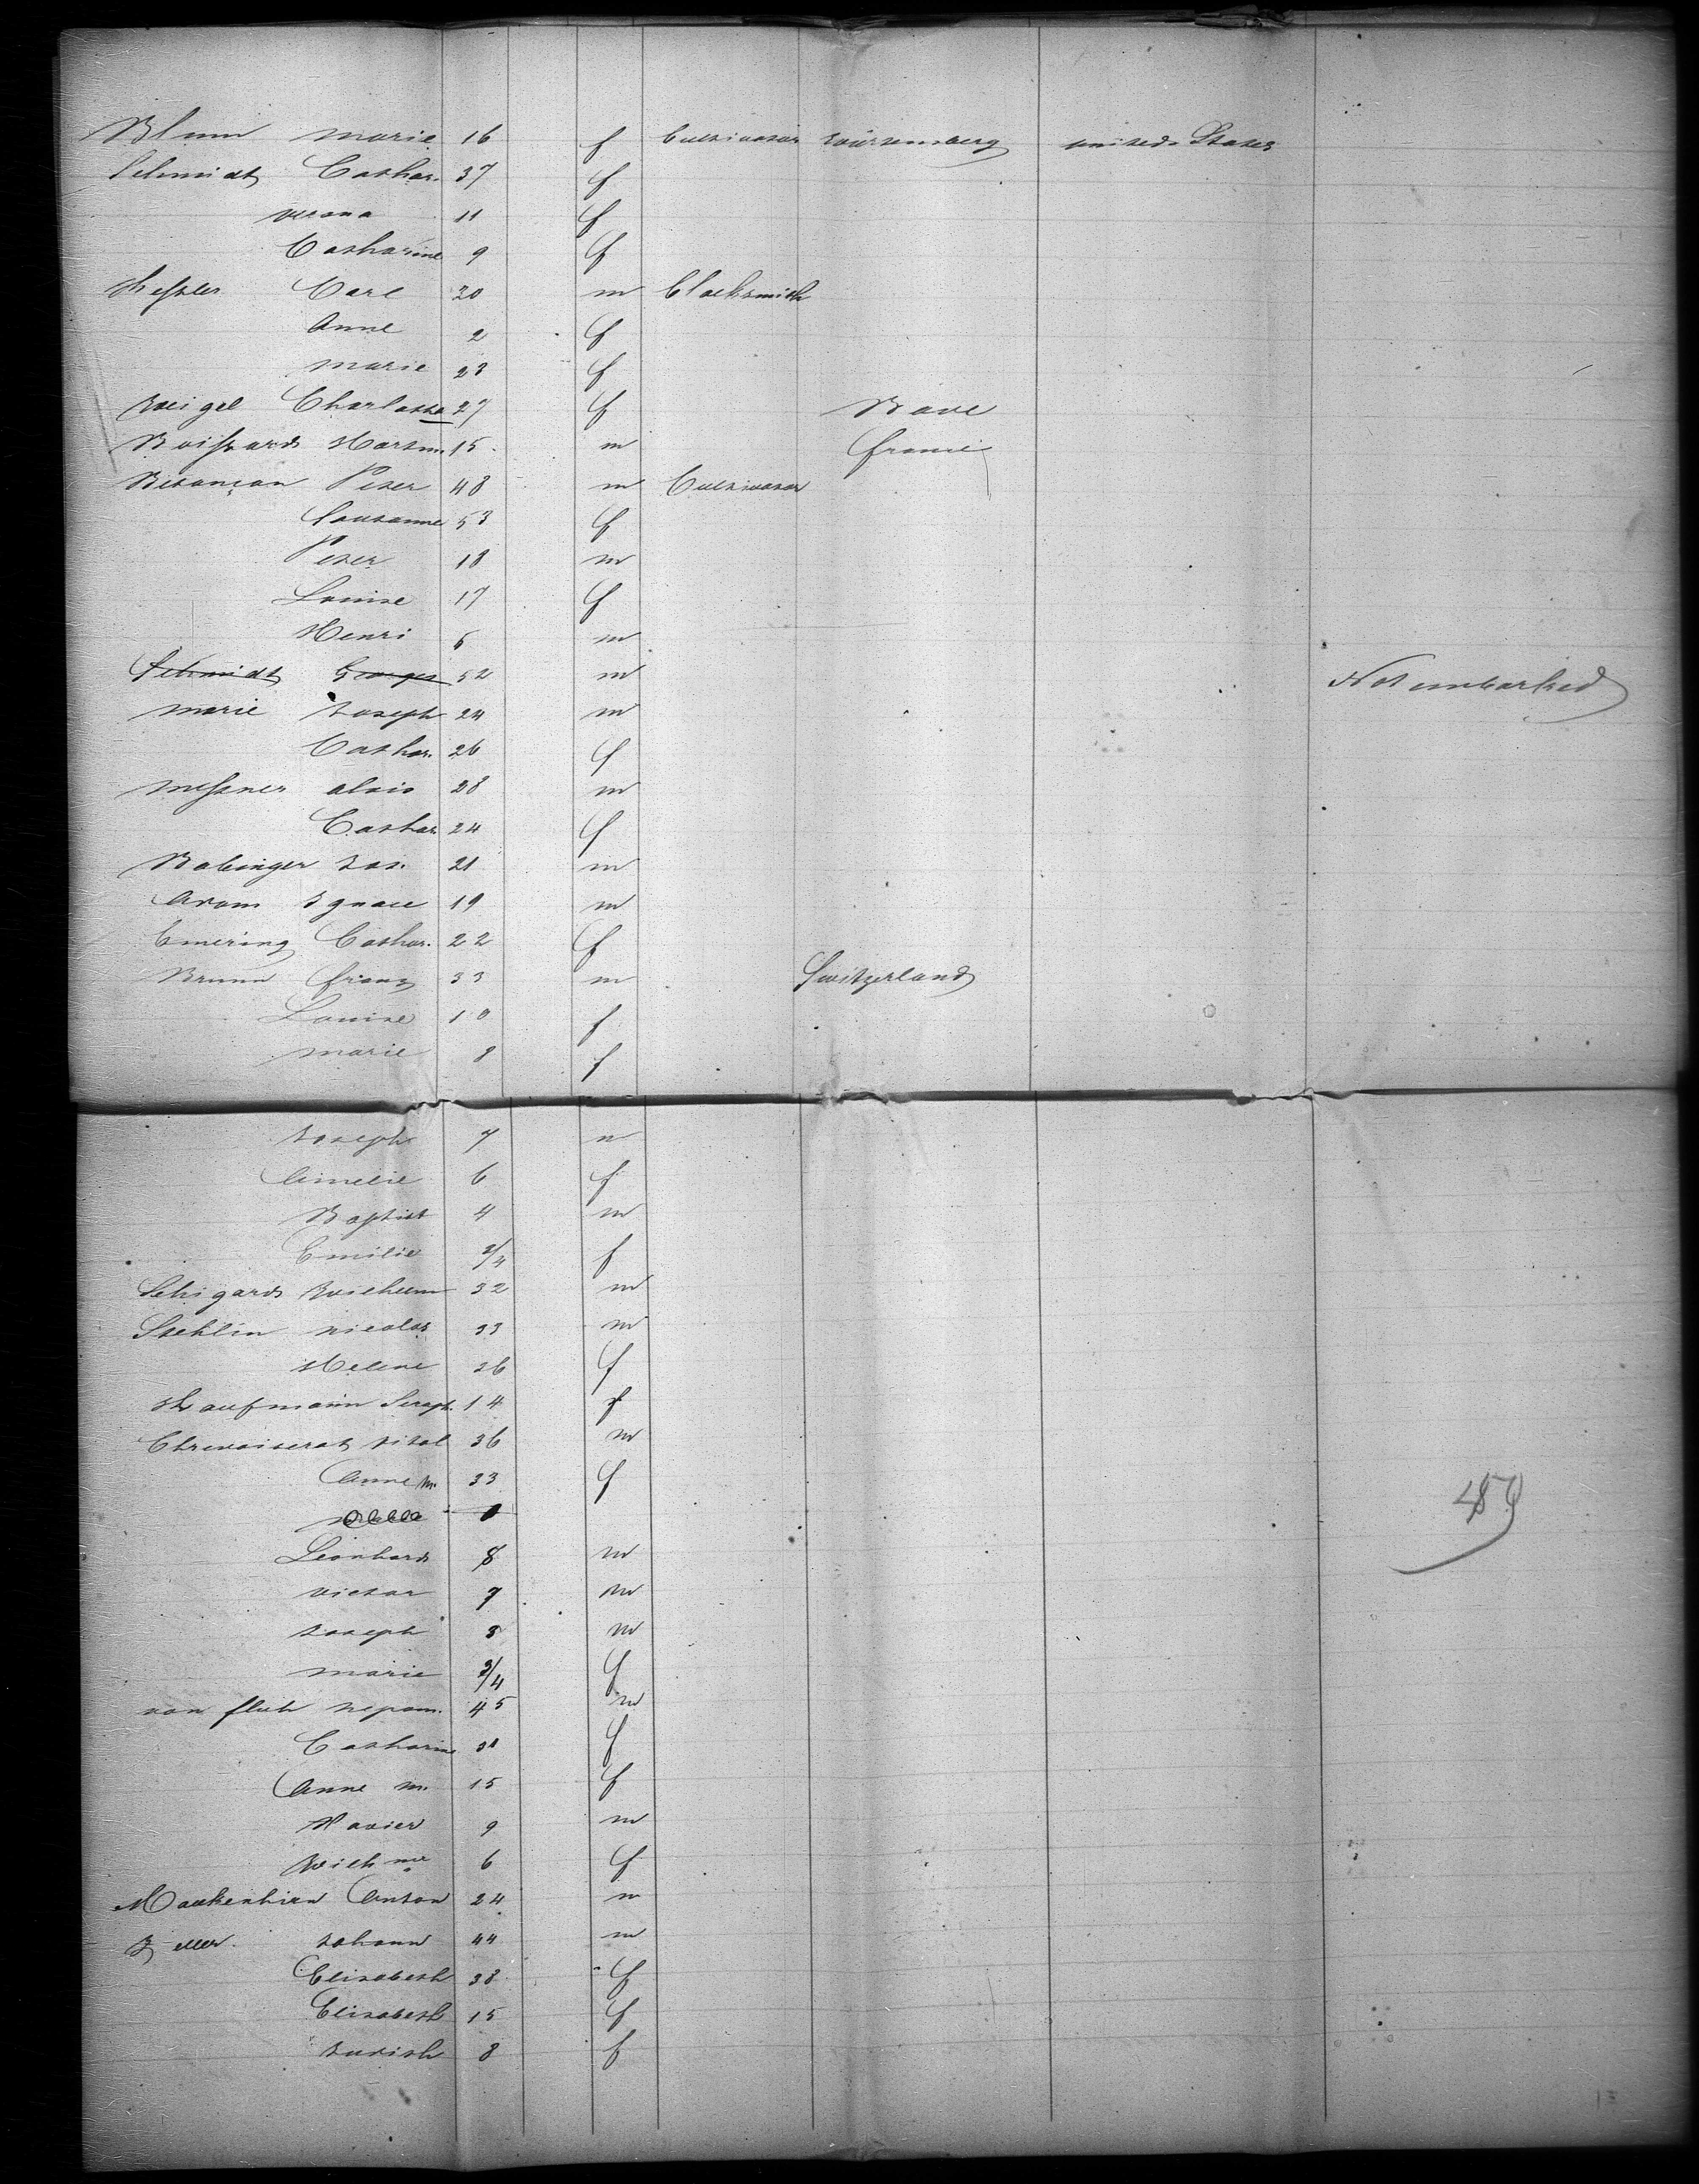 Blum Marie 16 f Cultivator Würtemberg united States
Schmidt Cathar. 37 f
Verona 11 f
Catharine 9 f
Kessler Carl 30 m Blacksmith
Anne 2 f
Marie 23 f
Weigel Charlotte 27 f Bave
Boissard 15 m France
Besançon Peter 48 m Cultivator
Sousanne 53 f
Peter 18 m
Louise 17 f
Henri m
Schmidt Georges 52 m Not embarked
Marie Joseph 24 m
Cathar. 26 f
Messner Alois 28 m
Cathar. 24 f
Babinger Jos. 21 m
Ignace 19 m
Emering Cathar. 22 f
Brunn Franz 33 m Switzerland
Louise 10 f
Marie 8 f
Joseph 7 m
Amelie 6 f
Baptist 4 m
Emilie f
Wilhelm 32 m
Stehlin Nicolas 33 m
Helene 36 f
Kaufmann Seraph. 14 f
Vital 36 m
Anne M. 33 f
Leonhard 8 m
Victor 7 m
Joseph 3 m
Marie 3/4 f
von Flüh Nepom. 45 m
Catharine f
Anne M. 15 f
Xavier 9 m
Wilh.me 6 f
Anton 24 m
Zeller Johann 44 m
Elisabeth 38 f
Elisabeth 15 f
Judith 8 f